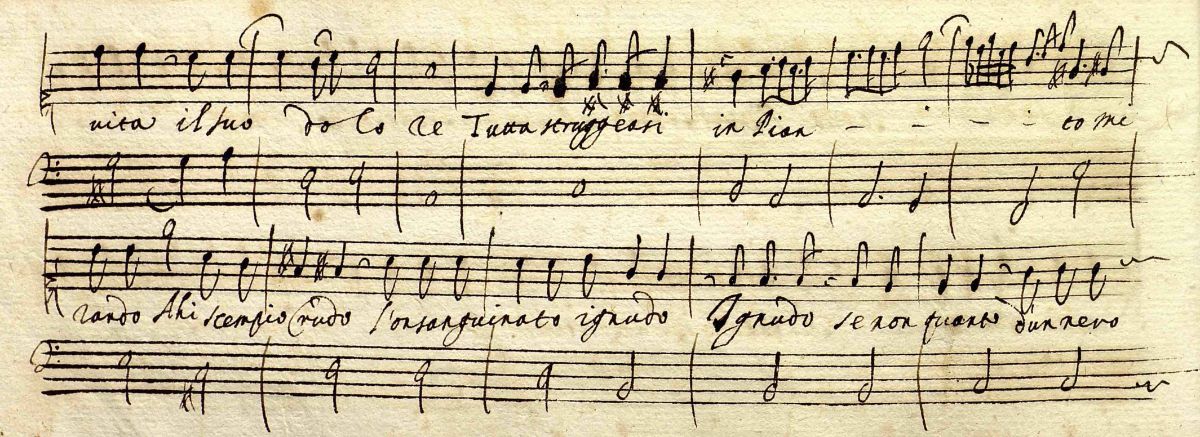 vita il suo do lo re Tutta struggeasi in Pian - - - - - to mi
rando Ahi scempio Crudo l'onsanguinato ignudo Ignudo se non quanto d'un nero